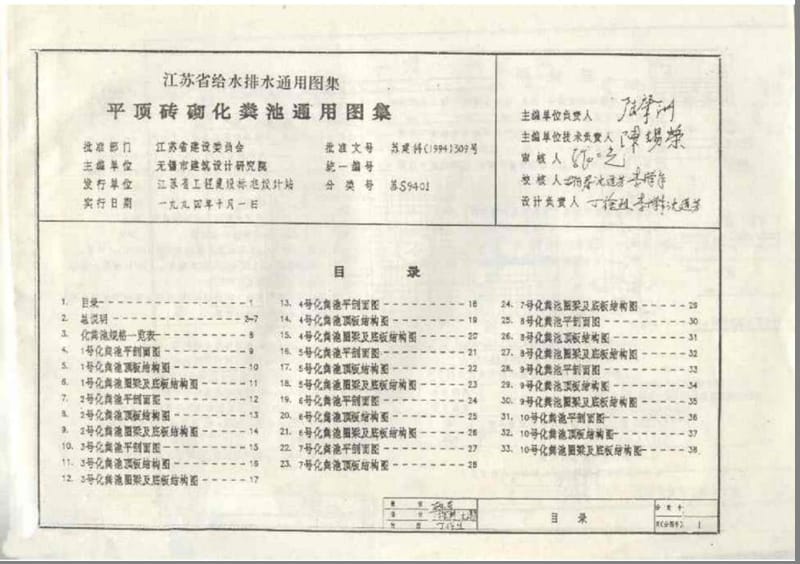 江苏省给水排水通用图集
平顶砖砌化粪池通用图集
批准部门 江苏省建设委员会 批准文号 苏建科(1994)309号
主编单位 无锡市建筑设计研究院 统一编号
发行单位 江苏省工程建设标准设计站 分类号 苏S9401
实行日期 一九九四年十月一日
主编单位负责人
主编单位技术负责人 陳锡荣
审核人
校核人
设计负责人
目录
1. 目录 1
2. 总说明 2-7
3. 化粪池规格一览表 8
4. 1号化粪池平剖面图 9
5. 1号化粪池顶板结构图 10
6. 1号化粪池圈梁及底板结构图 11
7. 2号化粪池平剖面图 12
8. 2号化粪池顶板结构图 13
9. 2号化粪池圈梁及底板结构图 14
10. 3号化粪池平剖面图 15
11. 3号化粪池顶板结构图 16
12. 3号化粪池圈梁及底板结构图 17
13. 4号化粪池平剖面图 18
14. 4号化粪池顶板结构图 19
15. 4号化粪池圈梁及底板结构图 20
16. 5号化粪池平剖面图 21
17. 5号化粪池顶板结构图 22
18. 5号化粪池圈梁及底板结构图 23
19. 6号化粪池平剖面图 24
20. 6号化粪池顶板结构图 25
21. 6号化粪池圈梁及底板结构图 26
22. 7号化粪池平剖面图 27
23. 7号化粪池顶板结构图 28
24. 7号化粪池圈梁及底板结构图 29
25. 8号化粪池平剖面图 30
26. 8号化粪池顶板结构图 31
27. 8号化粪池圈梁及底板结构图 32
28. 9号化粪池平剖面图 33
29. 9号化粪池顶板结构图 34
30. 9号化粪池圈梁及底板结构图 35
31. 10号化粪池平剖面图 36
32. 10号化粪池顶板结构图 37
33. 10号化粪池圈梁及底板结构图 38
目录
1